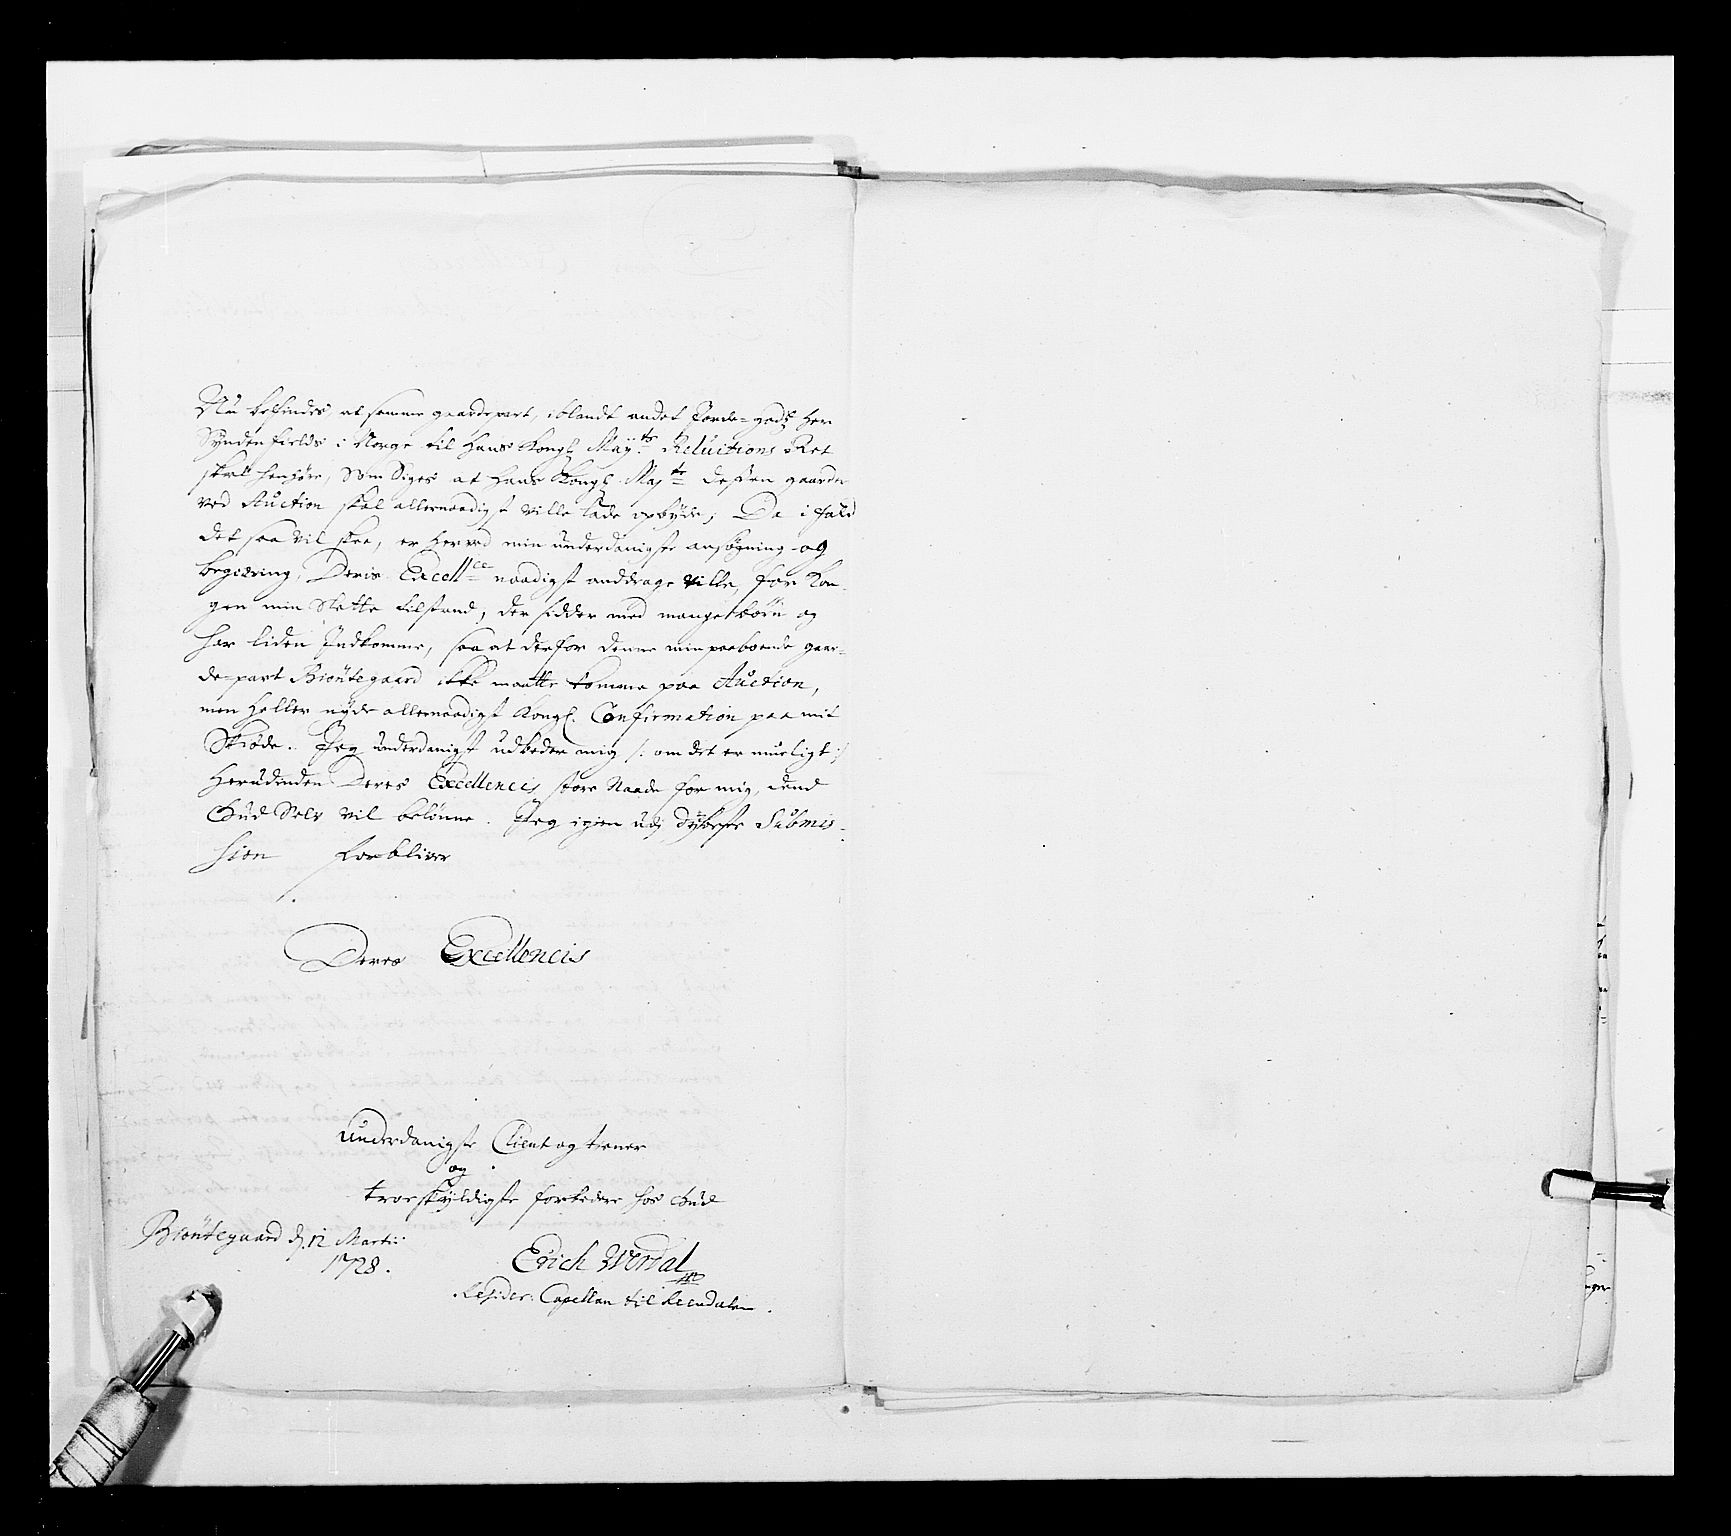 Nu befindes, at samme gaardepart, iblandt andet Jorde-godtz her
Synden fields i Norge til Hans Kongl. May.ts Reluitions Ret
skal henhøre, Som Siges at Hans Kongl. Maj.ts dessen gaarder
ved Auction skal allernaadigst ville lade opbyde; Da i fald
det saa vil skee, er herved min underdanigste ansøgning og
begiæring, Deris Excell.ce naadigst anddrage ville, for Kon-
gen min Slette tilstand, der sidder med mange børn og
har liden Indkomme, saa at derfor denne min paaboende gaar-
de-part Biøntegaard ikke maatte komme paa Auction,
men heller nyde allernaadigst Kongl. Confirmation paa mit
Skiøde. Jeg underdanigst udbeder mig /: om det er mueligt :/
herudinden Deres Excellencis store Naade for mig, dend
Gud Selv vil belønne. Jeg igien udj dybeste Submis-
sion forbliver
Deres Excellencis
underdanigste Client og tiener
og
troeskyldigste forbedere hos Gud
Biøntegaard d. 12 Martii
1728.
Erich Werdal
Resider: Capellan til